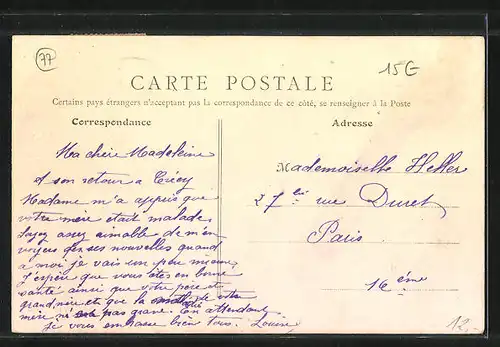 77
15€
CARTE POSTALE
Certains pays étrangers n'acceptant pas la correspondance de ce côté, se renseigner à la Poste
Correspondance
Adresse
Ma chère Madeleine
A son retour a Crécy
Madame m'a appris que
votre mère était malade.
Soyez assez aimable de m'en
voyers des nouvelles quand
a moi je vais un peu mieux,
J'espère que vous êtes en bonne
santé ainsi que votre père et
grand mère et que la maladie de votre
mère n'est pas grave. En attendant
je vous embrasse bien tous. Louise
Mademoiselle Heller
27 bis rue Duret
Paris
16 ème
12,-